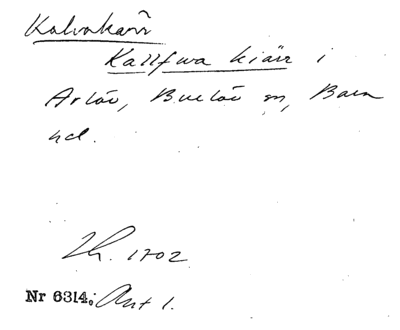 Kalvakärr
Kallfwa kiärr i
Arlöv, Burlöv sn, Bara
hd.
Lh. 1702
Nr 6314. Akt 1.